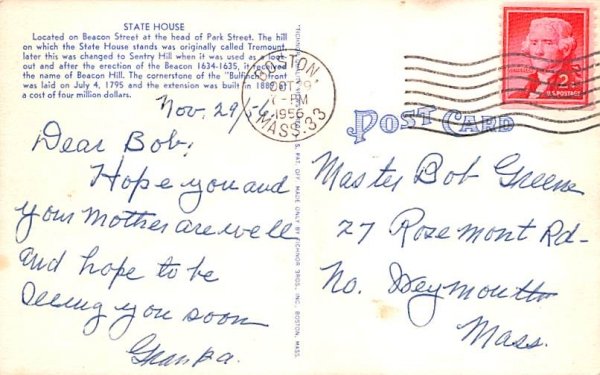 STATE HOUSE
Located on Beacon Street at the head of Park Street. The hill
on which the State House stands was originally called Tremount,
later this was changed to Sentry Hill when it was used as a look-
out and after the erection of the Beacon 1634-1635, it received
the name of Beacon Hill. The cornerstone of the "Bulfinch" front
was laid on July 4, 1795 and the extension was built in 1889 at
a cost of four million dollars.
Nov. 29/56
Dear Bob:
Hope you and
your Mother are well
and hope to be
seeing you soon
Granpa.
BOSTON
9
7-PM
1956
MASS. 33
PAT. OFF. MADE ONLY BY TICHNOR BROS., INC., BOSTON, MASS.
2¢
U.S. POSTAGE
POST CARD
Master Bob Greene
27 Rosemont Rd-
No. Weymouth
Mass.